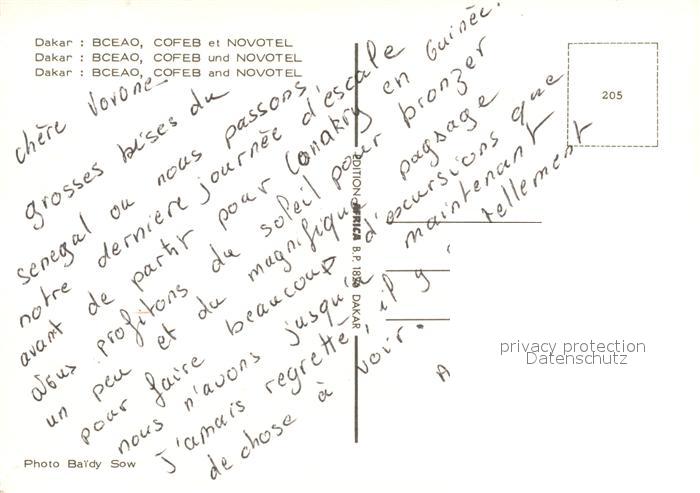 Dakar : BCEAO, COFEB et NOVOTEL
Dakar : BCEAO, COFEB und NOVOTEL
Dakar : BCEAO, COFEB and NOVOTEL
205
chère Vovone
grosses bises du
senegal ou nous passons
notre derniere journée d'escale
avant de partir pour Conakry en Guinée.
nous profitons du soleil pour bronzer
un peu et du magnifique paysage
pour faire beaucoup d'excursions que
nous n'avons jusqu'à maintenant
j'amais regretté, il y a tellement
de chose à voir.
EDITION AFRICA B.P. 1856 DAKAR
privacy protection
Datenschutz
Photo Baïdy Sow